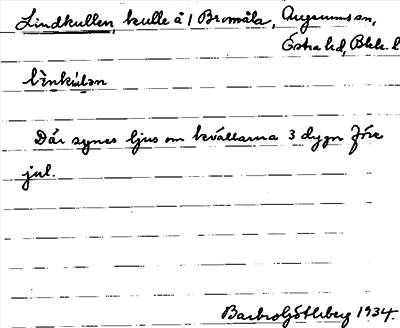 Lindkullen, kulle å 1 Bromåla, Augerums sn,
Östra hd, Blek. l
li`nkúlən
Där synes ljus om kvällarna 3 dygn före
jul.
Barbro Götlsberg 1934.